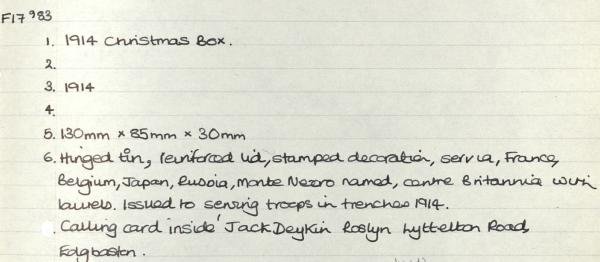 F17 983
1. 1914 Christmas Box.
2.
3. 1914
4.
5. 130mm x 85mm x 30mm
6. Hinged tin, reinforced lid, stamped decoration, servia, France,
Belgium, Japan, Russia, Monte Negro named, centre Britannia with
laurels. Issued to serving troops in trenches 1914.
Calling card inside 'Jack Deykin Roslyn Lyttelton Road,
Edgbaston.